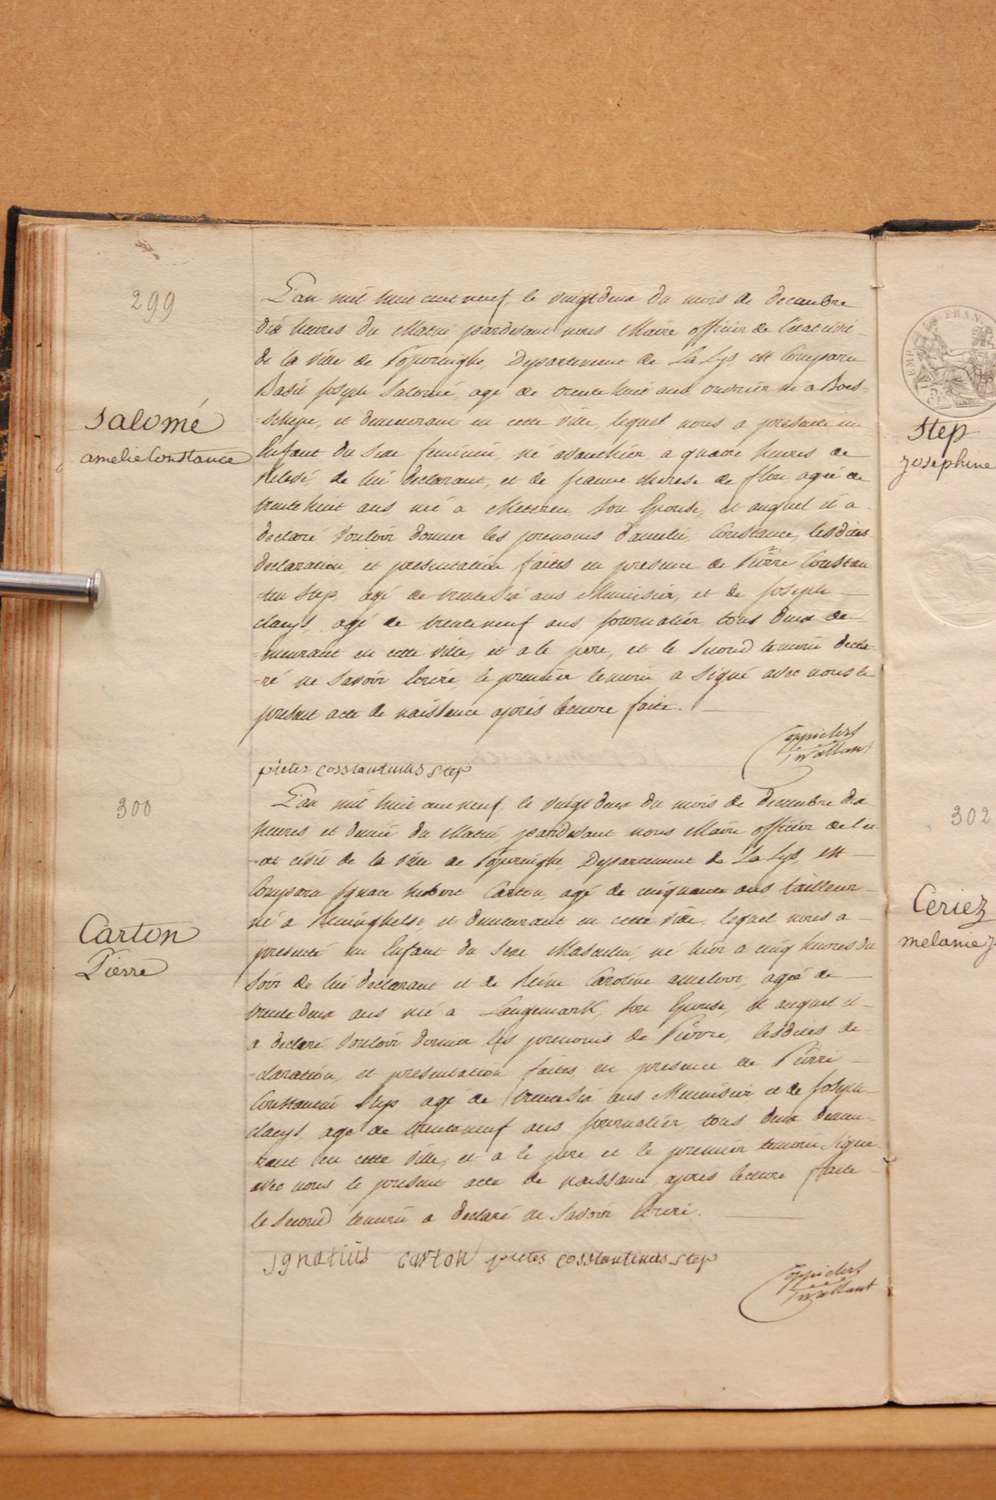 299
Salomé
amelie Constance
L'an mil huit cent neuf, le vingtdeux du mois de decembre
dix heures du Matin pardevant nous Maire officier de l'état civil
de la ville de Poperinghe, Departement de La Lys est Comparu
Basile Joseph Salomé, agé de trente huit ans ouvrier né a Boes-
-chepe, et demeurant en cette ville, lequel nous a presenté un
Enfant du Sexe feminin, né avanthier a quatre heures de
relevé de lui declarant, et de jeanne therese de flou, agée de
trente huit ans née a Meteren, son Epouse, et auquel il a
declaré vouloir donner les prenoms d'amelie Constance, lesdites
declaration, et presentation faites en presence de Pierre Constan
-tin Step, agé de trentesix ans Menuisier, et de Joseph
claeys, agé de trenteneuf ans journalier, tous deux de-
-meurant en cette ville, et a le pere, et le second temoin decla-
-ré ne savoir Ecrire, le premier temoin a signé avec nous le
present acte de naissance apres lecture faite.
pieter costtantinus step
300
Carton
Pierre
L'an mil huit cent neuf, le vingtdeux du mois de Decembre dix
heures et demie du Matin pardevant nous Maire officier de l'e
-tat civil de la ville de Poperinghe, Departement de La Lys, est
Comparu Ignace hubert Carton, agé de cinquante ans tailleur
né a Reninghelst, et demeurant en cette ville, lequel nous a
presenté un Enfant du Sexe Masculin, né hier a cinq heures du
soir de lui declarant et de Reine Caroline ameloot, agée de
trentedeux ans née a Langemarck, son Epouse, et auquel il
a declaré vouloir donner les prenoms de Pierre, lesdites de-
-claration, et presentation faites en presence de Pierre
Constantin Step agé de trentesix ans Menuisier et de Joseph
claeys agé de trenteneuf ans journalier tous deux demeu-
-rant en cette ville, et a le pere et le premier temoin signé
avec nous le present acte de naissance apres lecture faite
le second temoin a declaré ne savoir Ecrire.
ignatius carton pieter costtantinus step
Step
Josephine
302
Ceriez
melanie